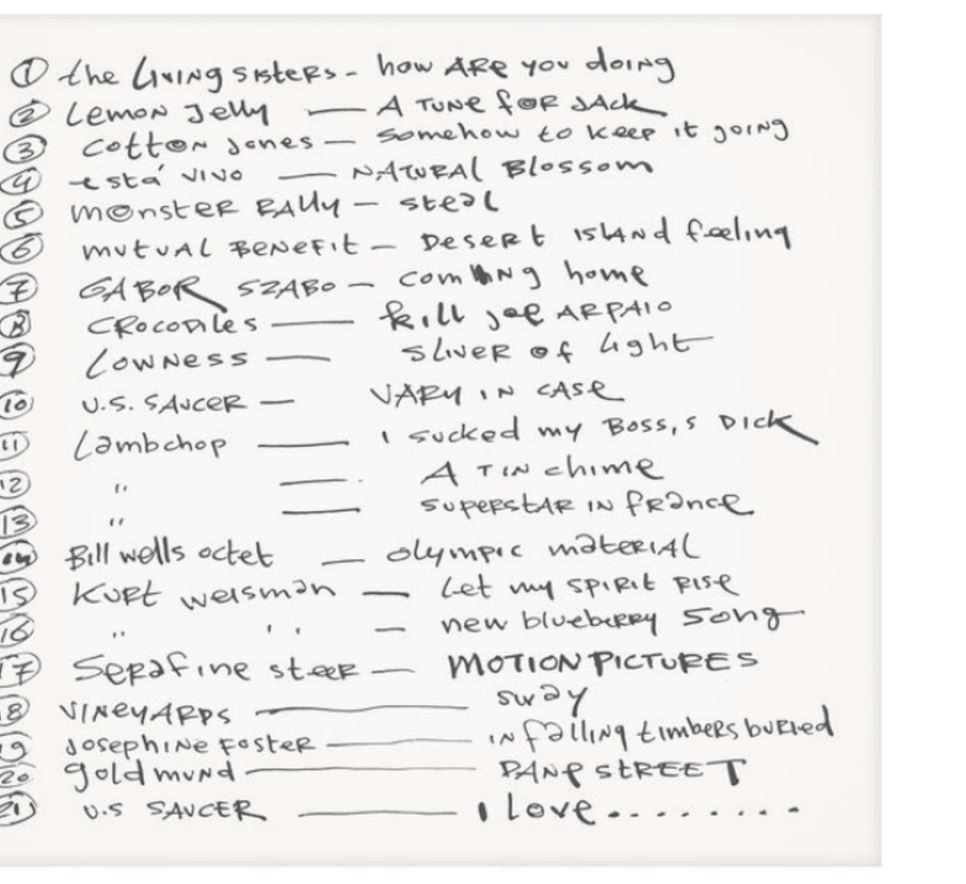 ① the Living sisters - how ARE you doing
② Lemon Jelly — A TUNE for JAck
③ cotton Jones — somehow to keep it going
④ está vivo — NATURAL Blossom
⑤ monster RAlly — steal
⑥ mutual Benefit — Desert Island feeling
⑦ GABOR SZABO — coming home
⑧ CROCODILES — kill joe ARPAIO
⑨ Lowness — SLIVER of light
⑩ U.S. SAUCER — VARY IN CASE
⑪ Lambchop — I sucked my Boss,s DICK
⑫ " — A TIN chime
⑬ " — SUPERSTAR IN france
⑭ Bill wells octet — olympic material
⑮ Kurt weisman — Let my SPIRIT RISE
⑯ " " — new blueberry Song
⑰ Serafine steer — MOTION PICTURES
⑱ VINEYARDS — sway
⑲ Josephine Foster — in falling timbers buried
⑳ gold mund — PANE STREET
㉑ U.S SAUCER — I Love........